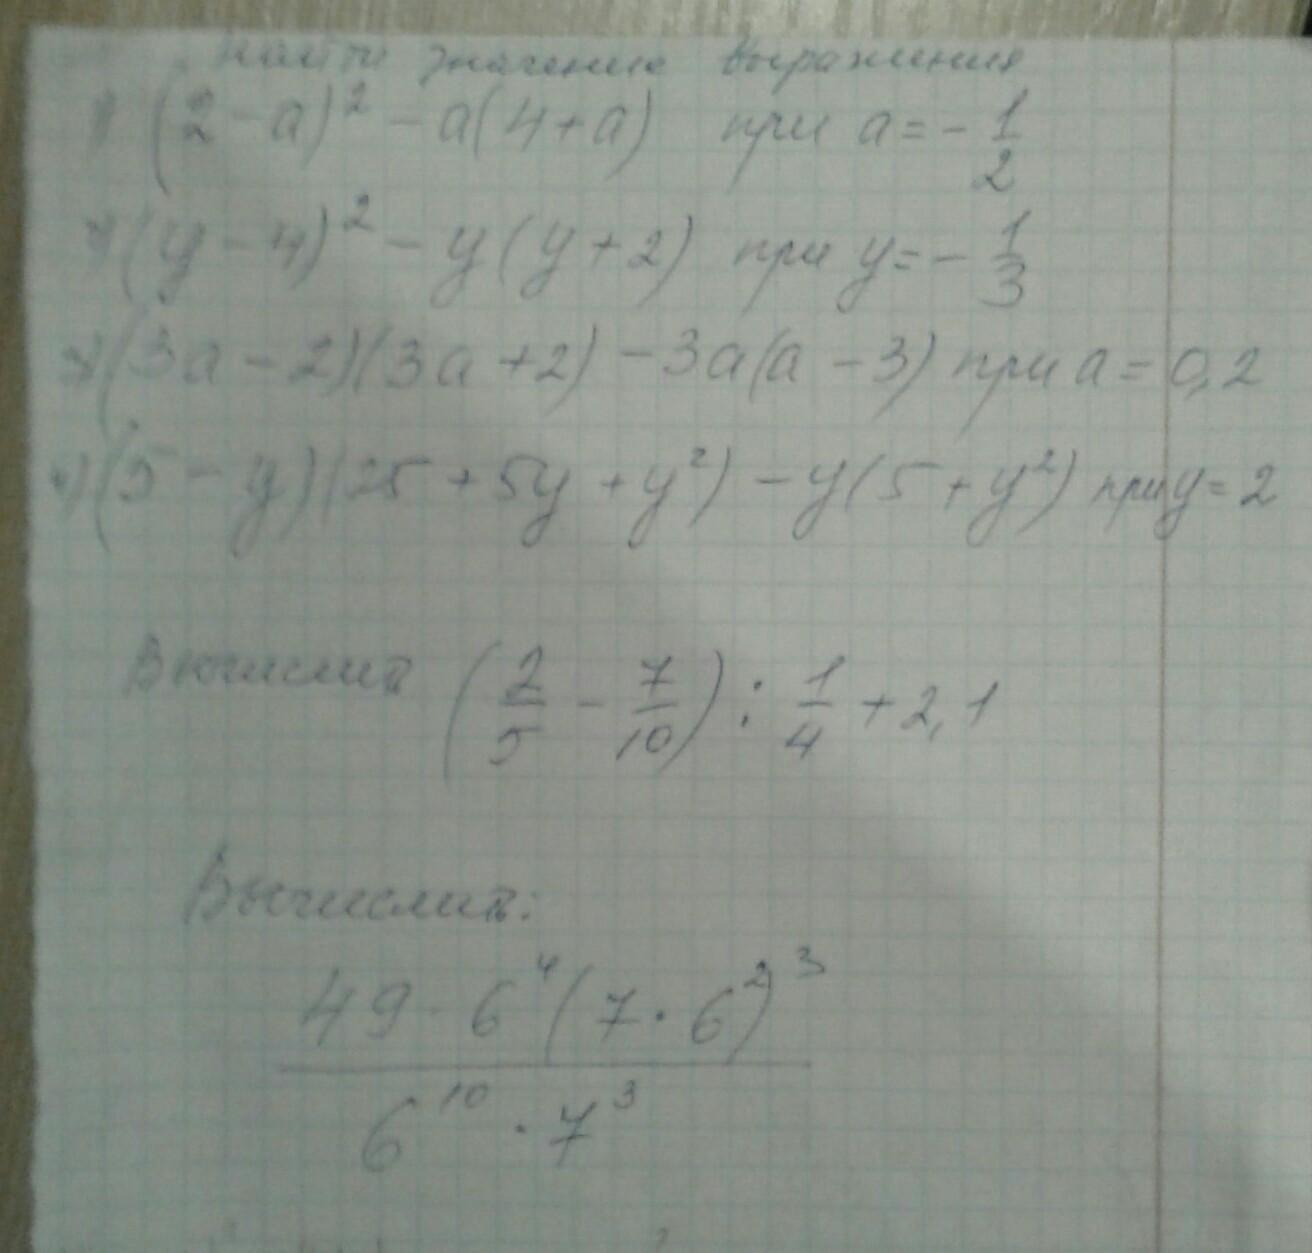 Найти значение выражения
1) (2-a)² - a(4+a) при a = - 1/2
2) (y-4)² - y(y+2) при y = - 1/3
3) (3a-2)(3a+2) - 3a(a-3) при a = 0,2
4) (5-y)(25+5y+y²) - y(5+y²) при y = 2
Вычислить (2/5 - 7/10) : 1/4 + 2,1
Вычислить:
49 · 6⁴(7·6²)³
6¹⁰ · 7³